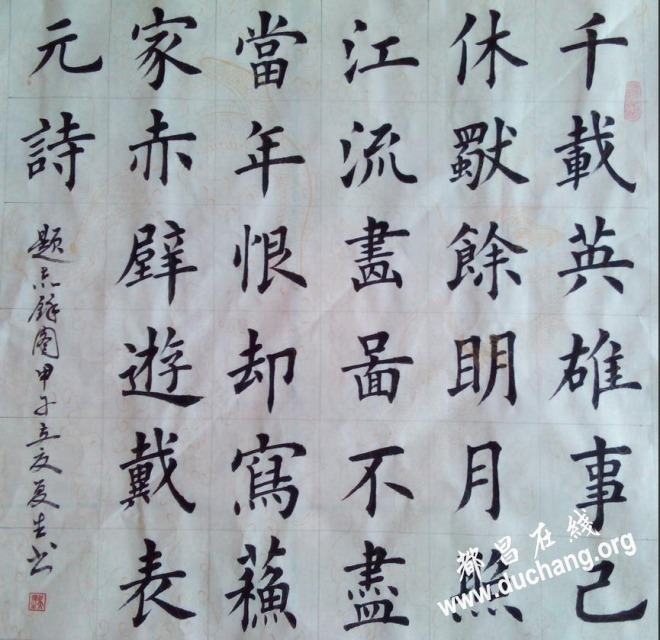 千載英雄事已
休獨餘明月照
江流畫啚不盡
當年恨却寫蘓
家赤壁遊戴表
元詩
题赤壁圖甲子立夏生书
都昌在线
www.duchang.org